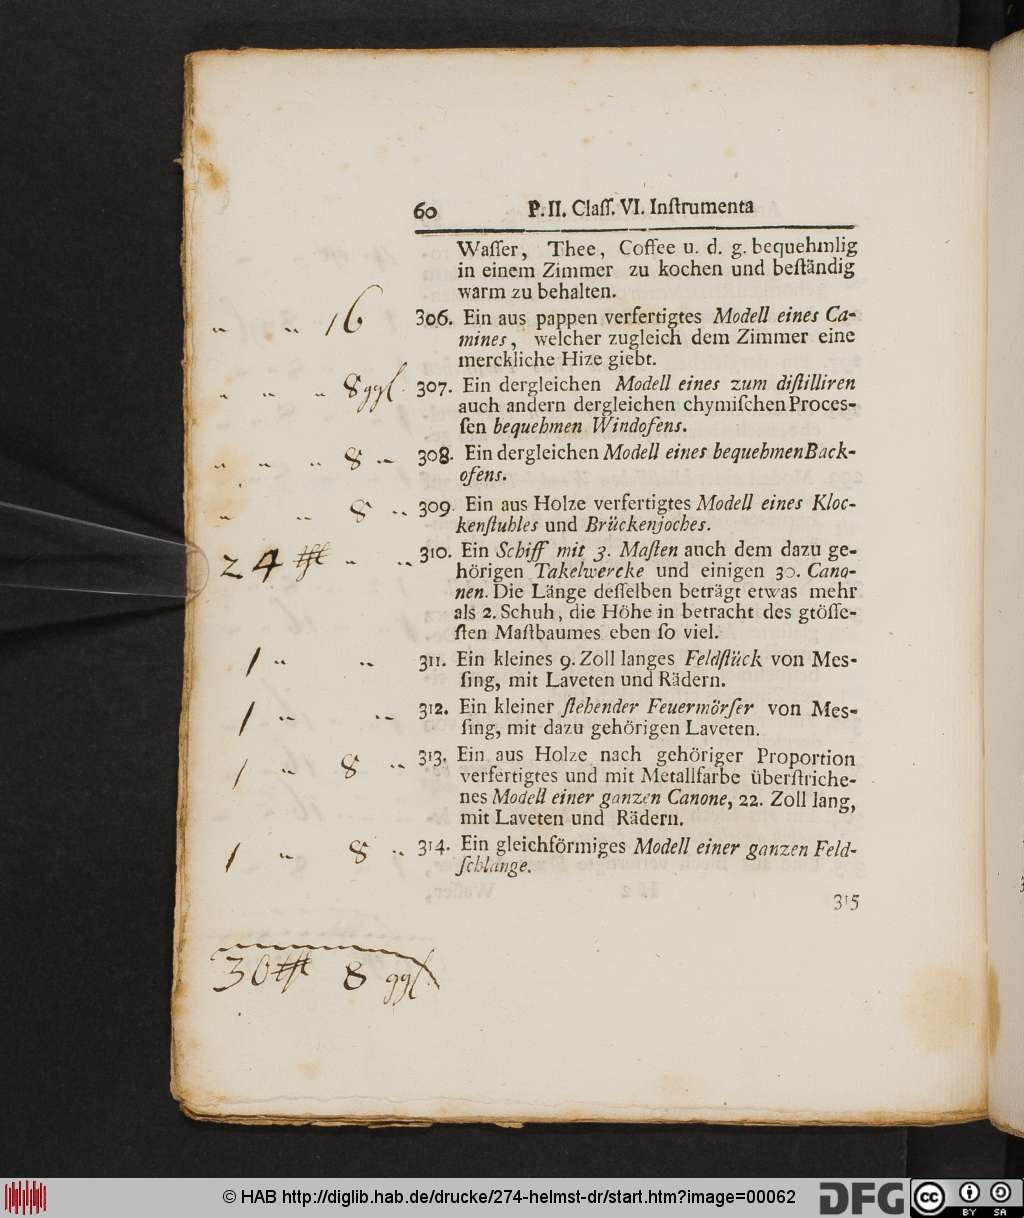 60 P. II. Claſſ. VI. Inſtrumenta
Waſſer, Thee, Coffee u. d. g. bequehmlig
in einem Zimmer zu kochen und beſtändig
warm zu behalten.
" " 16 306. Ein aus pappen verfertigtes Modell eines Ca-
mines, welcher zugleich dem Zimmer eine
merckliche Hize giebt.
" " " 8 ggl. 307. Ein dergleichen Modell eines zum diſtilliren
auch andern dergleichen chymiſchen Proces-
ſen bequehmen Windofens.
" " " 8 " 308. Ein dergleichen Modell eines bequehmen Back-
ofens.
" " 8 " 309. Ein aus Holze verfertigtes Modell eines Kloc-
kenſtuhles und Brückenjoches.
24 " " 310. Ein Schiff mit 3. Maſten auch dem dazu ge-
hörigen Takelwercke und einigen 30. Cano-
nen. Die Länge deſſelben beträgt etwas mehr
als 2. Schuh, die Höhe in betracht des gtöſſe-
ſten Maſtbaumes eben ſo viel.
1 " " 311. Ein kleines 9. Zoll langes Feldſtück von Meſ-
ſing, mit Laveten und Rädern.
1 " " 312. Ein kleiner ſtehender Feuermörſer von Meſ-
ſing, mit dazu gehörigen Laveten.
1 " 8 " 313. Ein aus Holze nach gehöriger Proportion
verfertigtes und mit Metallfarbe überſtriche-
nes Modell einer ganzen Canone, 22. Zoll lang,
mit Laveten und Rädern.
1 " 8 " 314. Ein gleichförmiges Modell einer ganzen Feld-
ſchlange.
315
30 8 ggl.
© HAB http://diglib.hab.de/drucke/274-helmst-dr/start.htm?image=00062
DFG
cc BY SA